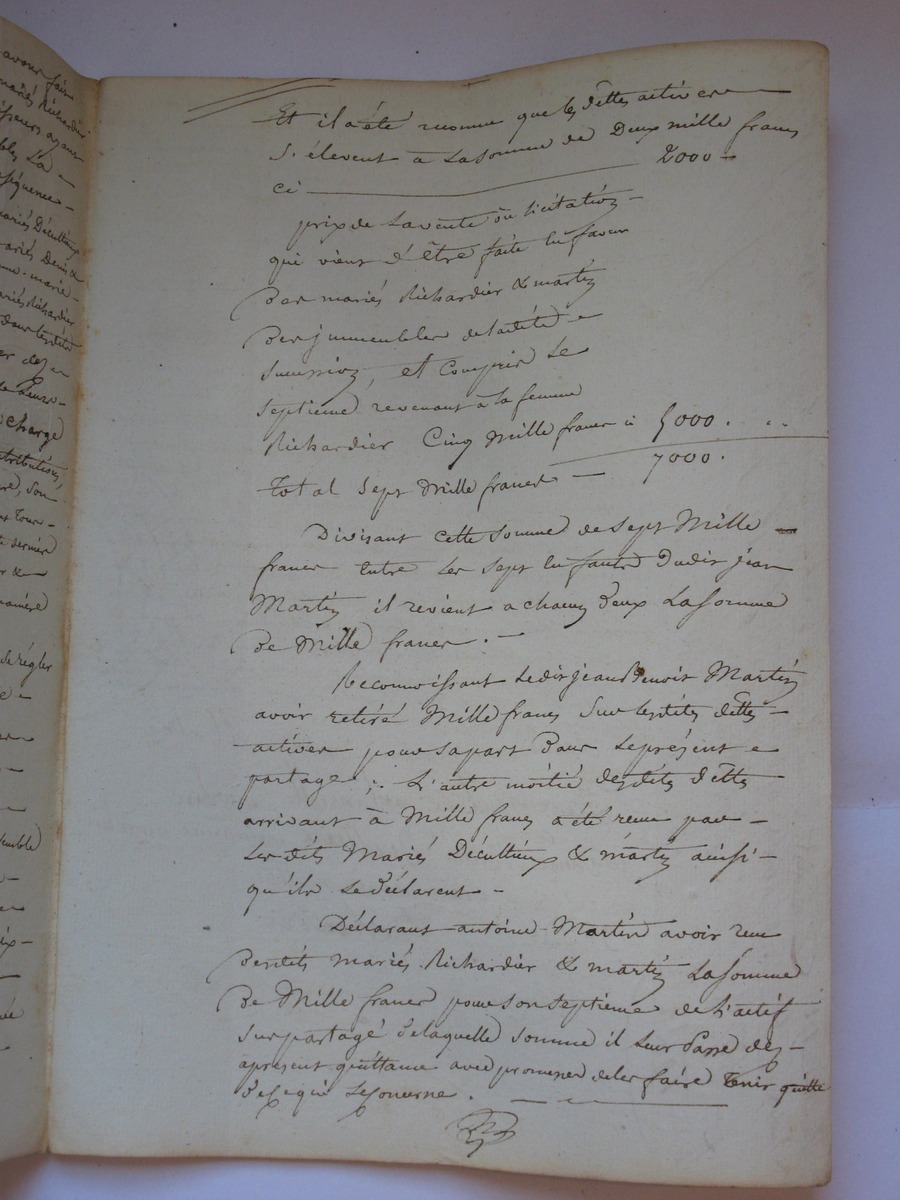 avoir fait
mariés Richardier
bles La
séquence
mariés Décultieux
mariés Denis &
marie
mariés Richardier
charge
tributions,
re, son
dernière
manière
de régler
semble
Et il a été reconnu que les dettes actives
s'élevent à La somme de Deux mille francs
ci 2000
prix de La vente ou licitation
qui vient d'être faite En faveur
Des mariés Richardier & martin
Des jmmeubles de ladite
succession, et Compris Le
septieme revenant à la femme
Richardier Cinq Mille francs ci 5000.
total sept Mille francs 7000.
Divisant cette somme de sept Mille
francs Entre Les sept Enfants Dudit jean
Martin il revient a chacun D'eux La somme
De Mille francs.
Reconnoissant Ledit jean Benoit Martin
avoir retiré Mille francs sur lesdites dettes
actives pour sa part Dans Le présent
partage; L'autre moitié desdites dettes
arrivant à Mille francs a été reçue par
Les dits Mariés Décultieux & martin ainsi
qu'ils Le déclarent
Déclarant antoine Martin avoir reçu
Desdits mariés Richardier & martin La somme
De Mille francs pour son septieme de L'actif
sus partagé De laquelle somme il Leur Passe dez
apresent quittance avec promesse de les faire tenir quitte
De ce qui Le concerne.